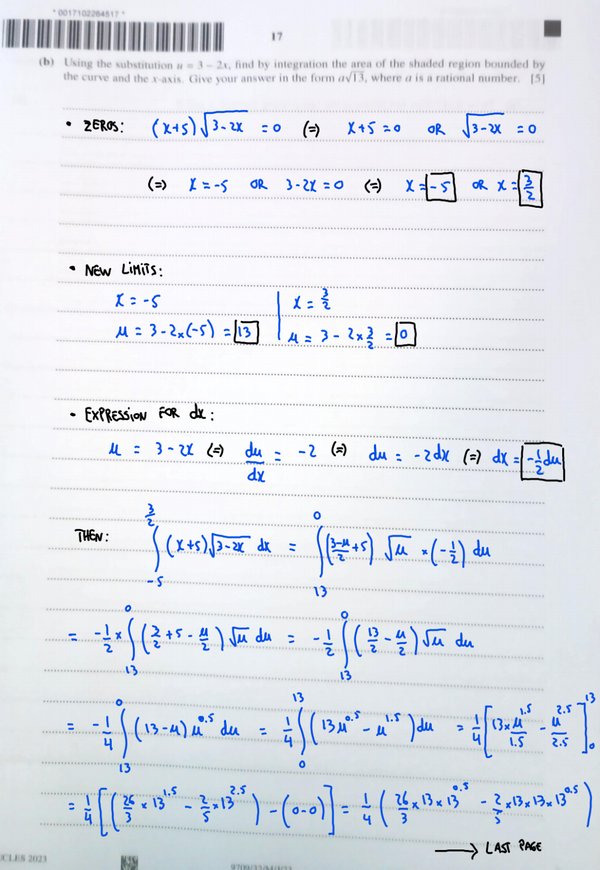 * 0017102264517 *
17
(b) Using the substitution u = 3 − 2x, find by integration the area of the shaded region bounded by
the curve and the x-axis. Give your answer in the form a√13, where a is a rational number. [5]
• ZEROS: (x+5)√(3-2x) = 0 (=) x+5=0 OR √(3-2x) = 0
(=) x=-5 OR 3-2x=0 (=) x=-5 OR x=3/2
• NEW LIMITS:
x=-5 | x=3/2
u = 3-2×(-5) = 13 | u = 3-2×3/2 = 0
• EXPRESSION FOR dx:
u = 3-2x (=) du/dx = -2 (=) du = -2dx (=) dx = -1/2 du
THEN: ∫_{-5}^{3/2} (x+5)√(3-2x) dx = ∫_{13}^{0} ((3-u)/2 +5) √u ×(-1/2) du
= -1/2 × ∫_{13}^{0} (3/2 +5 - u/2) √u du = -1/2 ∫_{13}^{0} (13/2 - u/2) √u du
= -1/4 ∫_{13}^{0} (13-u) u^0.5 du = 1/4 ∫_{0}^{13} (13u^0.5 - u^1.5) du = 1/4 [13× u^1.5/1.5 - u^2.5/2.5]_{0}^{13}
= 1/4 [(26/3 × 13^1.5 - 2/5 × 13^2.5) - (0-0)] = 1/4 (26/3 × 13 × 13^0.5 - 2/5 × 13 × 13 × 13^0.5)
→ LAST PAGE
CLES 2023